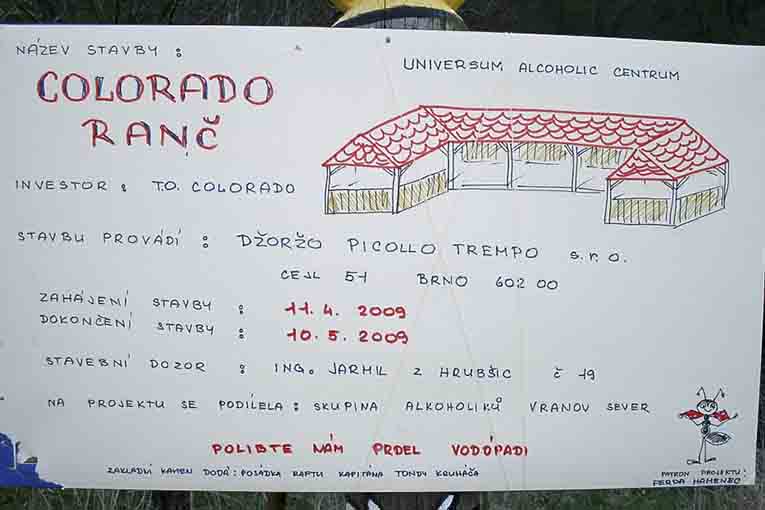 NÁZEV STAVBY :
UNIVERSUM ALCOHOLIC CENTRUM
COLORADO
RANČ
INVESTOR : T.O. COLORADO
STAVBU PROVÁDÍ : DŽORŽO PICOLLO TREMPO s.r.o.
CEJL 51 BRNO 602 00
ZAHÁJENÍ STAVBY : 11.4. 2009
DOKONČENÍ STAVBY : 10.5. 2009
STAVEBNÍ DOZOR : ING. JARMIL Z HRUBŠIC Č 19
NA PROJEKTU SE PODÍLELA : SKUPINA ALKOHOLIKŮ VRANOV SEVER
POLIBTE NÁM PRDEL VODÓPADI
ZÁKLADNÍ KÁMEN DODÁ : POSÁDKA RAFTU KAPITÁNA TONDY KRUHÁČA
PATRON PROJEKTU :
FERDA MAMENEC